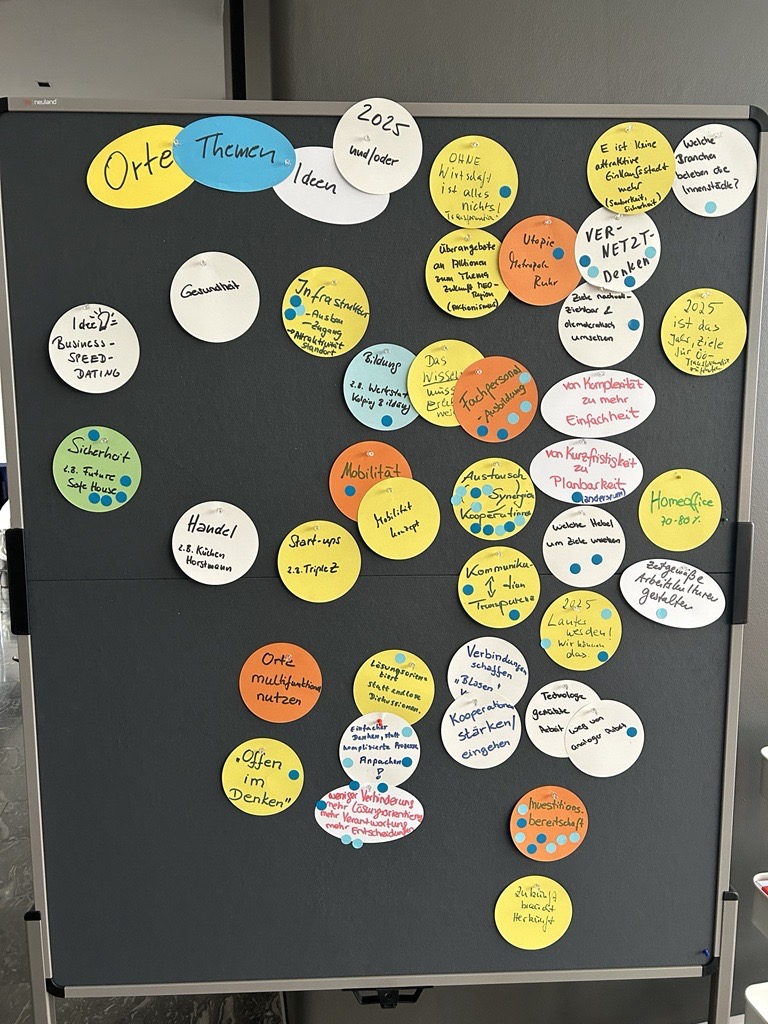 neuland
Orte
Themen
Ideen
2025
und/oder
OHNE
Wirtschaft
ist alles
nichts!
E ist keine
attraktive
Einkaufsstadt
mehr
(Sauberkeit,
Sicherheit)
Welche
Branchen
beleben die
Innenstädte?
Überangebote
an Aktionen
zum Thema
Zukunft
Region
(Aktionismus)
Utopie
Metropole
Ruhr
VER-
NETZT-
Denken
Ziele
ziehbar &
demokratisch
umsetzen
2025
ist das
Jahr, Ziele
für
Gesundheit
Infrastruktur
- Ausbau
- Zugang
→ Attraktivität
Standort
Idee
BUSINESS-
SPEED-
DATING
Bildung
z.B. Werkstatt
Kolping Bildung
Das
Wissen
muss
Fachpersonal
- Ausbildung
von Komplexität
zu mehr
Einfachheit
Sicherheit
z.B. Future
Safe House
Mobilität
Mobilität
konzept
Austausch
Synergie
Kooperationen
von Kurzfristigkeit
zu
Planbarkeit
(andersrum)
Homeoffice
70-80%
Handel
z.B. Küchen
Horstmann
Start-ups
z.B. Triple Z
Welche Hebel
um Ziele umsetzen
Kommunika-
tion
Transparenz
Zeitgemäße
Arbeitskulturen
gestalten
2025
Lauter
werden!
Wir können
das.
Orte
multifunktional
nutzen
Lösungsorien-
tiert
statt endlose
Diskussionen.
Verbindungen
schaffen
"Blasen"
Kooperationen
stärken/
eingehen
Technologie
gestützte
Arbeit
weg von
analoger Arbeit
Einfacher
Denken, statt
komplizierte Prozesse
Anpacken
!
"Offen
im
Denken"
weniger Verhinderung
mehr Lösungsorientierung
mehr Verantwortung
mehr Entscheidungen
Investitions-
bereitschaft
Zukunft
braucht
Herkunft